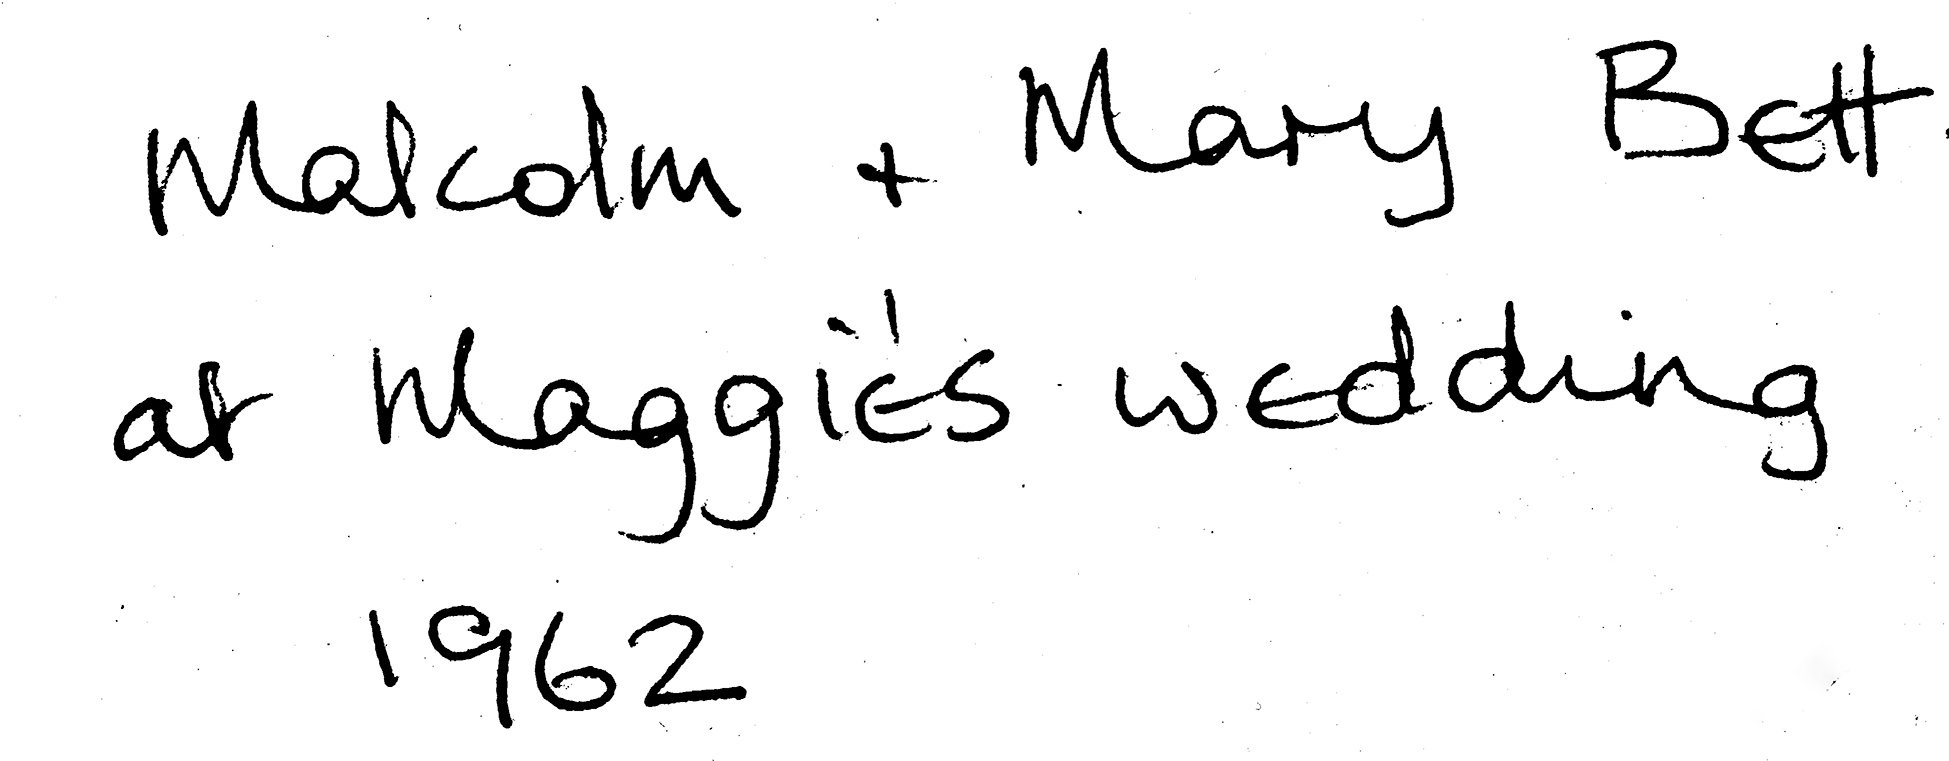 Malcolm + Mary Bett.
at Maggie's wedding
1962